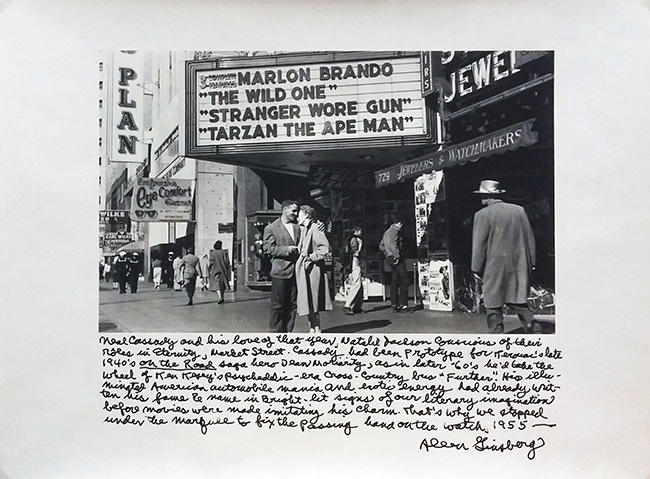 PLAN
3 COMPLETE FEATURES
MARLON BRANDO
"THE WILD ONE"
"STRANGER WORE GUN"
"TARZAN THE APE MAN"
JEWEL
729 JEWELERS & WATCHMAKERS
Eye Comfort
WILKE
Neal Cassady and his love of that year, Natalie Jackson conscious of their
roles in Eternity, Market Street. Cassady had been prototype for Kerouac's late
1940's On the Road saga hero Dean Moriarty, as in later '60's he'd take the
wheel of Ken Kesey's Psychedelic-era Cross-Country bus "Further." His illu-
minated American automobile mania and erotic energy had already writ-
ten his fame & name in Bright-lit signs of our literary imagination
before movies were made imitating his charm. That's why we stopped
under the marquee to fix the passing hand on the watch, 1955 —
Allen Ginsberg